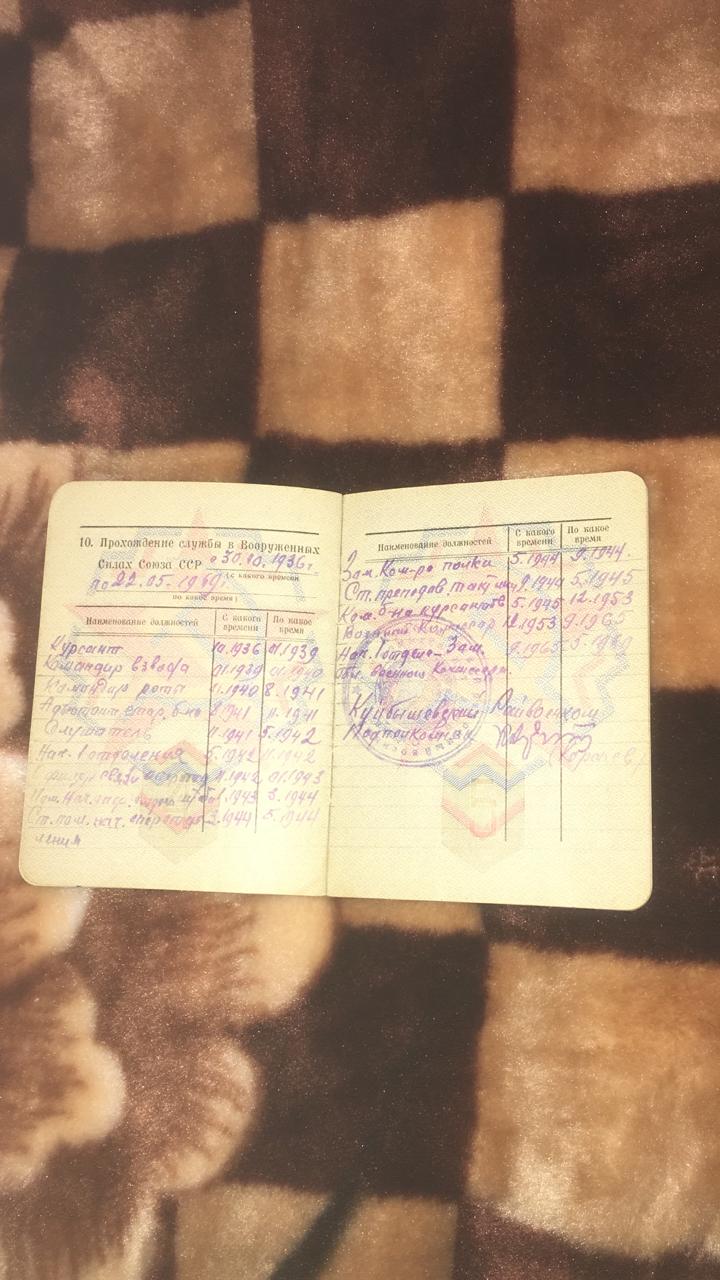 10. Прохождение службы в Вооруженных
Силах Союза ССР с 30.10.1936 г
(с какого времени
по 22.05.1969 г
по какое время)
Наименование должностей С какого времени По какое время
Курсант 10.1936 01.1939
Командир взвода 01.1939 01.1940
Командир роты 1.1940 8.1941
Адъютант стар. б-на 8.1941 11.1941
Слушатель 11.1941 5.1942
Нач. 1 отделения 5.1942 11.1942
связи 11.1942 01.1943
Пом. Нач. 1.1943 3.1944
Ст. пом. нач. оператив 3.1944 5.1944
ления
Наименование должностей С какого времени По какое время
Зам. Ком-ра полка 5.1944 9.1944
Ст. преподав. тактики 9.1944 5.1945
Ком. б-на курсантов 5.1945 12.1953
Военный Комиссар 12.1953 9.1965
Нач. 1 отдела - Зам. 9.1965 5.1969
Обл. военного Комиссара.
Куйбышевский Райвоенком
Подполковник
(Королев)